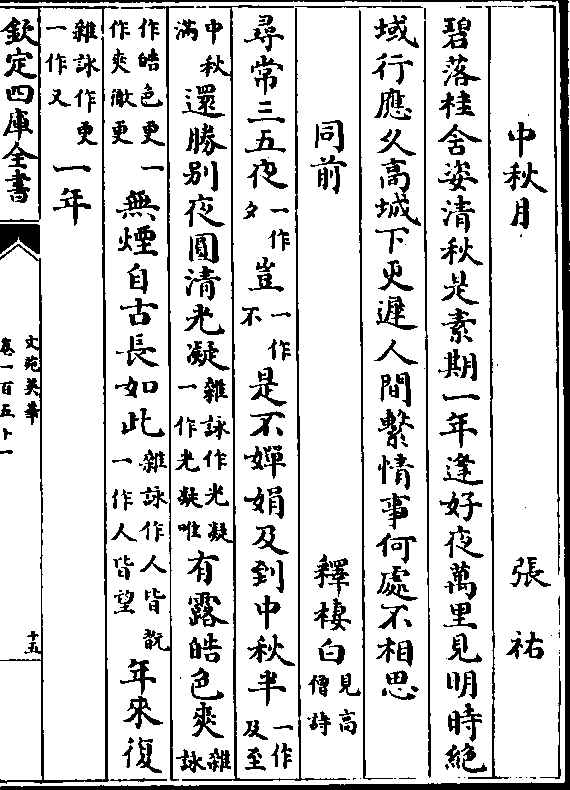 中秋月　張祐
碧落桂含姿清秋是素期一年逢好夜萬里見明時絶
域行應久高城下更遲人間繫情事何處不相思
同前　釋棲白見高僧詩
尋常三五夜一作夕豈一作不是不嬋娟及到中秋半一作及至
中秋滿還勝别夜圓清光凝雜詠作光凝一作光凝唯有露皓色爽雜詠
作皓色更一作爽徹更無煙自古長如此雜詠作人皆翫一作人皆望年來復
雜詠作更一作又一年
欽定四庫全書
文苑英華
卷一百五十一
十五